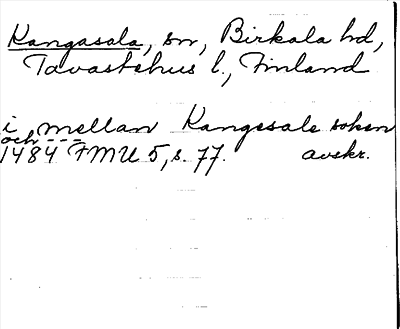 Kangasala, sn, Birkala hd,
Tavastehus l., Finland
i mellan Kangesale soken
och ---
1484 FMU 5, s. 77. avskr.